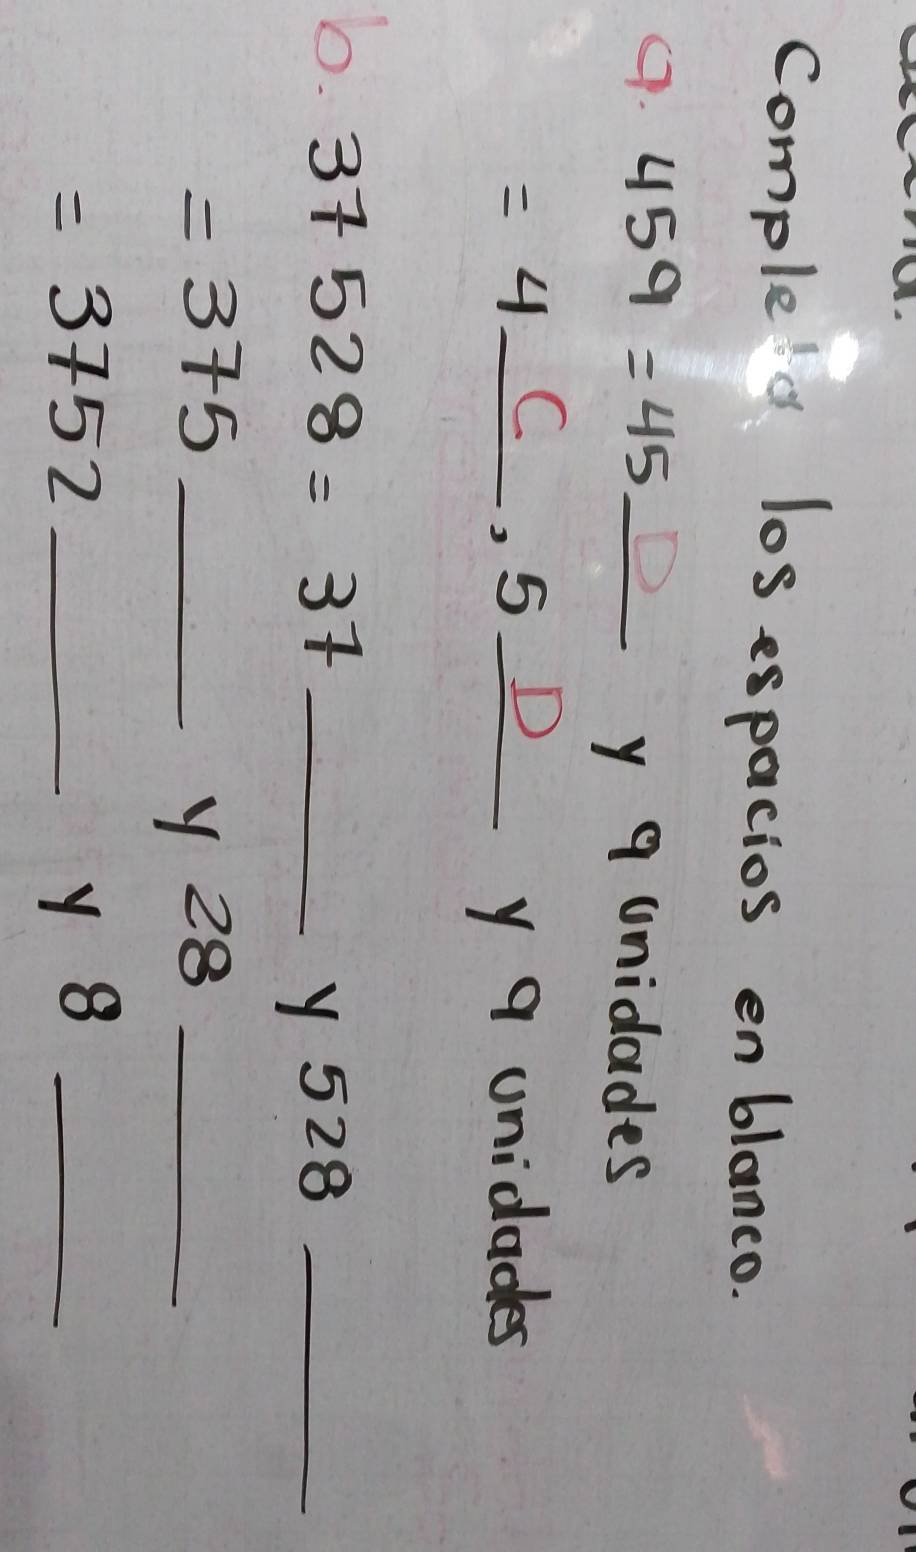 Completa los espacios en blanco.
a. 459 = 45 D y 9 unidades
= 4 C, 5 D y 9 unidades
b. 37 528 = 37 ____ y 528 ____
= 375 ____ y 28 ____
= 3752 ____ y 8 ____